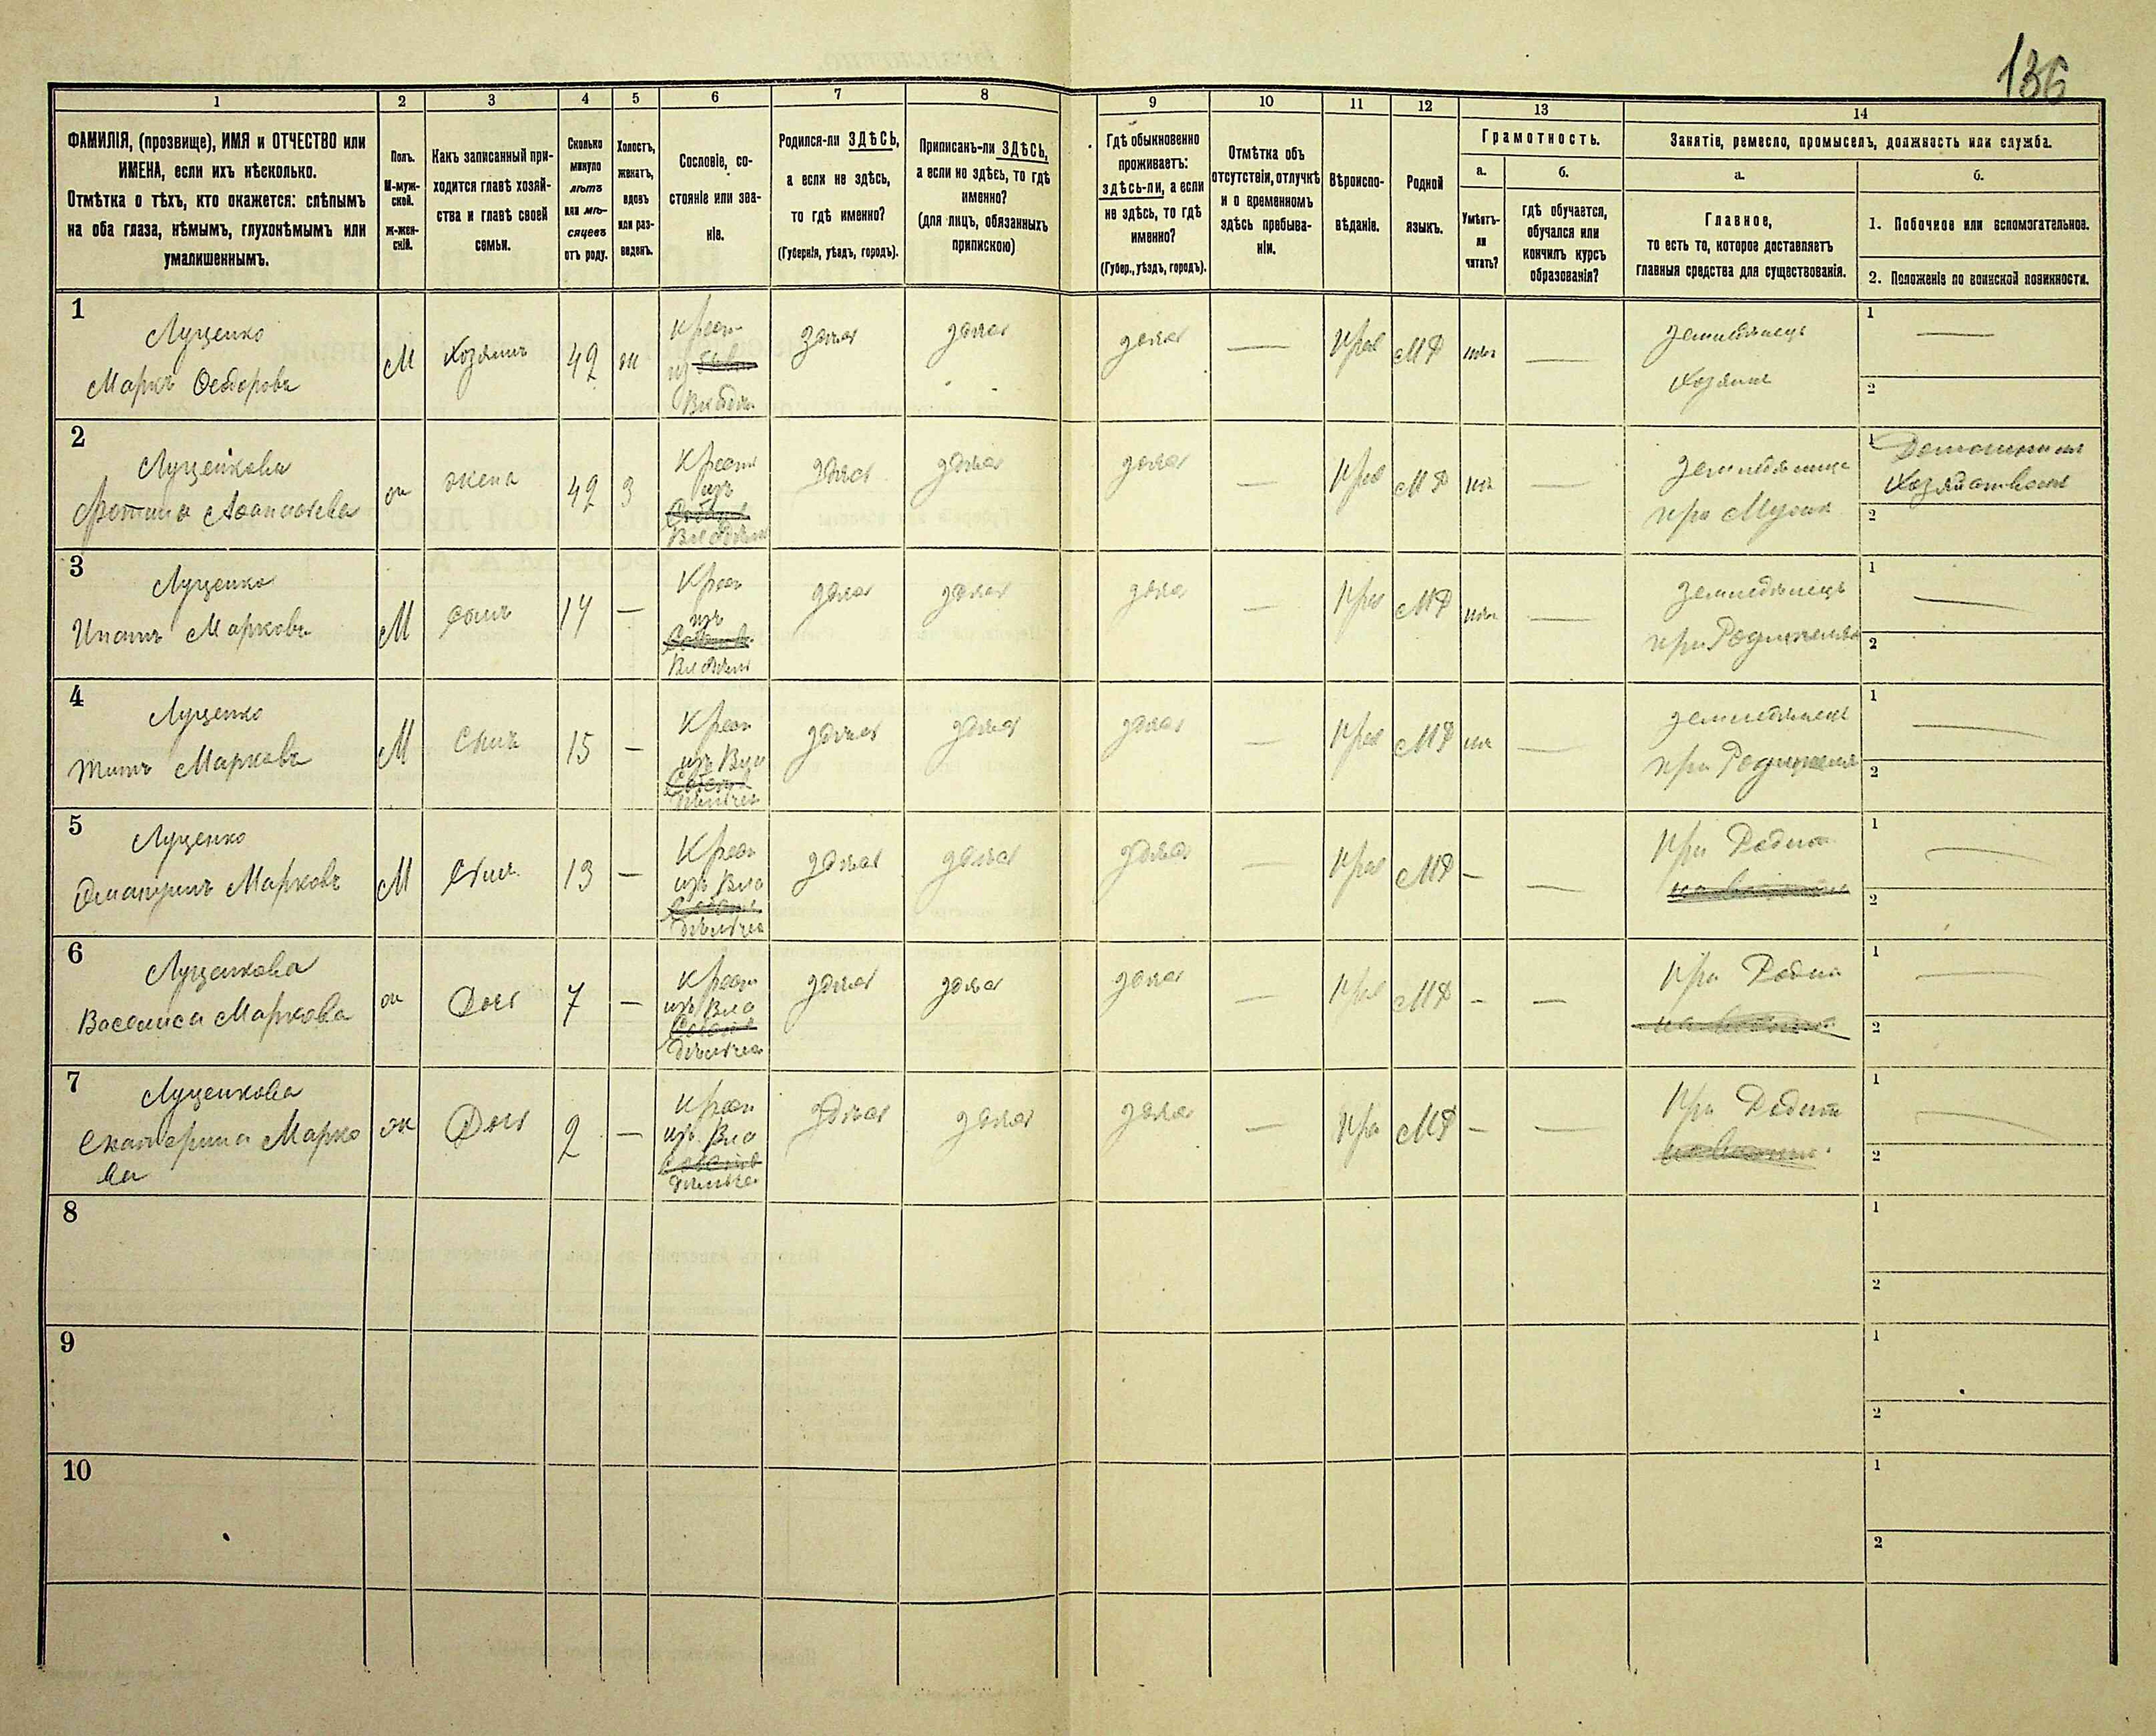 136
1
2
3
4
5
6
7
8
9
10
11
12
13
14
ФАМИЛІЯ, (прозвище), ИМЯ и ОТЧЕСТВО или
ИМЕНА, если ихъ нѣсколько.
Отмѣтка о тѣхъ, кто окажется: слѣпымъ
на оба глаза, нѣмымъ, глухонѣмымъ или
умалишеннымъ.
Полъ.
М-муж-
ской.
Ж-жен-
скій.
Какъ записанный при-
ходится главѣ хозяй-
ства и главѣ своей
семьи.
Сколько
минуло
лѣтъ
или мѣ-
сяцевъ
отъ роду.
Холостъ,
женатъ,
вдовъ
или раз-
веденъ.
Сословіе, со-
стояніе или зва-
ніе.
Родился-ли ЗДѢСЬ,
а если не здѣсь,
то гдѣ именно?
(Губернія, уѣздъ, городъ).
Приписанъ-ли ЗДѢСЬ,
а если не здѣсь, то гдѣ
именно?
(для лицъ, обязанныхъ
припискою)
Гдѣ обыкновенно
проживаетъ:
здѣсь-ли, а если
не здѣсь, то гдѣ
именно?
(Губер., уѣздъ, городъ).
Отмѣтка объ
отсутствіи, отлучкѣ
и о временномъ
здѣсь пребыва-
ніи.
Вѣроиспо-
вѣданіе.
Родной
языкъ.
Грамотность.
а.
Умѣетъ-
ли
читать?
б.
гдѣ обучается,
обучался или
кончилъ курсъ
образованія?
Занятіе, ремесло, промыселъ, должность или служба.
а.
Главное,
то есть то, которое доставляетъ
главныя средства для существованія.
б.
1. Побочное или вспомогательное.
2. Положеніе по воинской повинности.
1
Луценко
Маркъ Федоровъ
М
Хозяинъ
42
ж
Крест
из
здѣсь
здѣсь
здѣсь
—
Прав
МР
нѣтъ
—
земледѣлецъ
Хозяинъ
1
—
2
2
Луценкова
Фотина
ж
жена
42
З
Крест
изъ
здѣсь
здѣсь
здѣсь
—
Прав
МР
нѣтъ
—
при Мужѣ
1
2
3
Луценко
Игнатъ Марковъ
М
сынъ
17
—
Крест
изъ
здѣсь
здѣсь
здѣсь
—
Прав
МР
нѣтъ
—
земледѣлецъ
1
—
2
4
Луценко
Титъ Марковъ
М
Сынъ
15
—
Крест
изъ Вла
здѣсь
здѣсь
здѣсь
—
Прав
МР
—
земледѣлецъ
1
—
2
5
Луценко
Дмитрій Марковъ
М
Сынъ
13
—
Крест
изъ Вла
здѣсь
здѣсь
здѣсь
—
Прав
МР
—
—
При Родит
1
—
2
6
Луценкова
Василиса Маркова
ж
Дочь
7
—
Крест
изъ Вла
здѣсь
здѣсь
здѣсь
—
Прав
МР
—
—
При Роди
1
—
2
7
Луценкова
Екатерина Марко
ва
ж
Дочь
2
—
Крест
изъ Вла
здѣсь
здѣсь
здѣсь
—
Пра
МР
—
—
При Родит
1
—
2
8
1
2
9
1
2
10
1
2